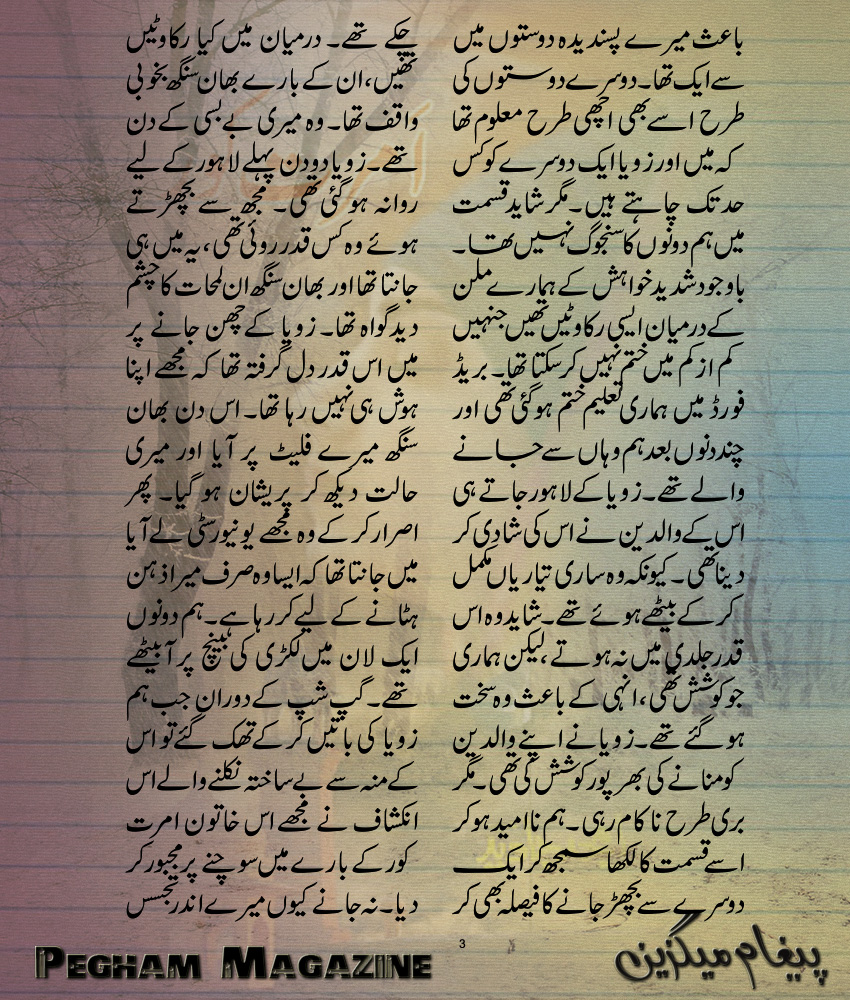 باعث میرے پسندیدہ دوستوں میں
سے ایک تھا۔ دوسرے دوستوں کی
طرح اسے بھی اچھی طرح معلوم تھا
کہ میں اور زویا ایک دوسرے کو کس
حد تک چاہتے ہیں۔ مگر شاید قسمت
میں ہم دونوں کا سنجوگ نہیں تھا۔
باوجود شدید خواہش کے ہمارے ملن
کے درمیان ایسی رکاوٹیں تھیں جنہیں
کم از کم میں ختم نہیں کر سکتا تھا۔ بریڈ
فورڈ میں ہماری تعلیم ختم ہوگئی تھی اور
چند دنوں بعد ہم وہاں سے جانے
والے تھے۔ زویا کے لاہور جاتے ہی
اس کے والدین نے اس کی شادی کر
دینا تھی۔ کیونکہ وہ ساری تیاریاں مکمل
کر کے بیٹھے ہوئے تھے۔ شاید وہ اس
قدر جلدی میں نہ ہوتے، لیکن ہماری
جو کوشش تھی، انہی کے باعث وہ سخت
ہو گئے تھے۔ زویا نے اپنے والدین
کو منانے کی بھر پور کوشش کی تھی۔ مگر
بری طرح ناکام رہی۔ ہم نا امید ہو کر
اسے قسمت کا لکھا سمجھ کر ایک
دوسرے سے بچھڑ جانے کا فیصلہ بھی کر
چکے تھے۔ درمیان میں کیا رکاوٹیں
تھیں، ان کے بارے بھان سنگھ بخوبی
واقف تھا۔ وہ میری بے بسی کے دن
تھے۔ زویا دو دن پہلے لاہور کے لیے
روانہ ہو گئی تھی۔ مجھ سے بچھڑتے
ہوئے وہ کس قدر روئی تھی، یہ میں ہی
جانتا تھا اور بھان سنگھ ان لمحات کا چشم
دید گواہ تھا۔ زویا کے چھن جانے پر
میں اس قدر دل گرفتہ تھا کہ مجھے اپنا
ہوش ہی نہیں رہا تھا۔ اس دن بھان
سنگھ میرے فلیٹ پر آیا اور میری
حالت دیکھ کر پریشان ہو گیا۔ پھر
اصرار کر کے وہ مجھے یونیورسٹی لے آیا
میں جانتا تھا کہ ایسا وہ صرف میرا ذہن
ہٹانے کے لیے کر رہا ہے۔ ہم دونوں
ایک لان میں لکڑی کی بینچ پر آ بیٹھے
تھے۔ گپ شپ کے دوران جب ہم
زویا کی باتیں کر کے تھک گئے تو اس
کے منہ سے بے ساختہ نکلنے والے اس
انکشاف نے مجھے اس خاتون امرت
کور کے بارے میں سوچنے پر مجبور کر
دیا۔ نہ جانے کیوں میرے اندر تجسس
3
PEGHAM MAGAZINE
پیغام میگزین